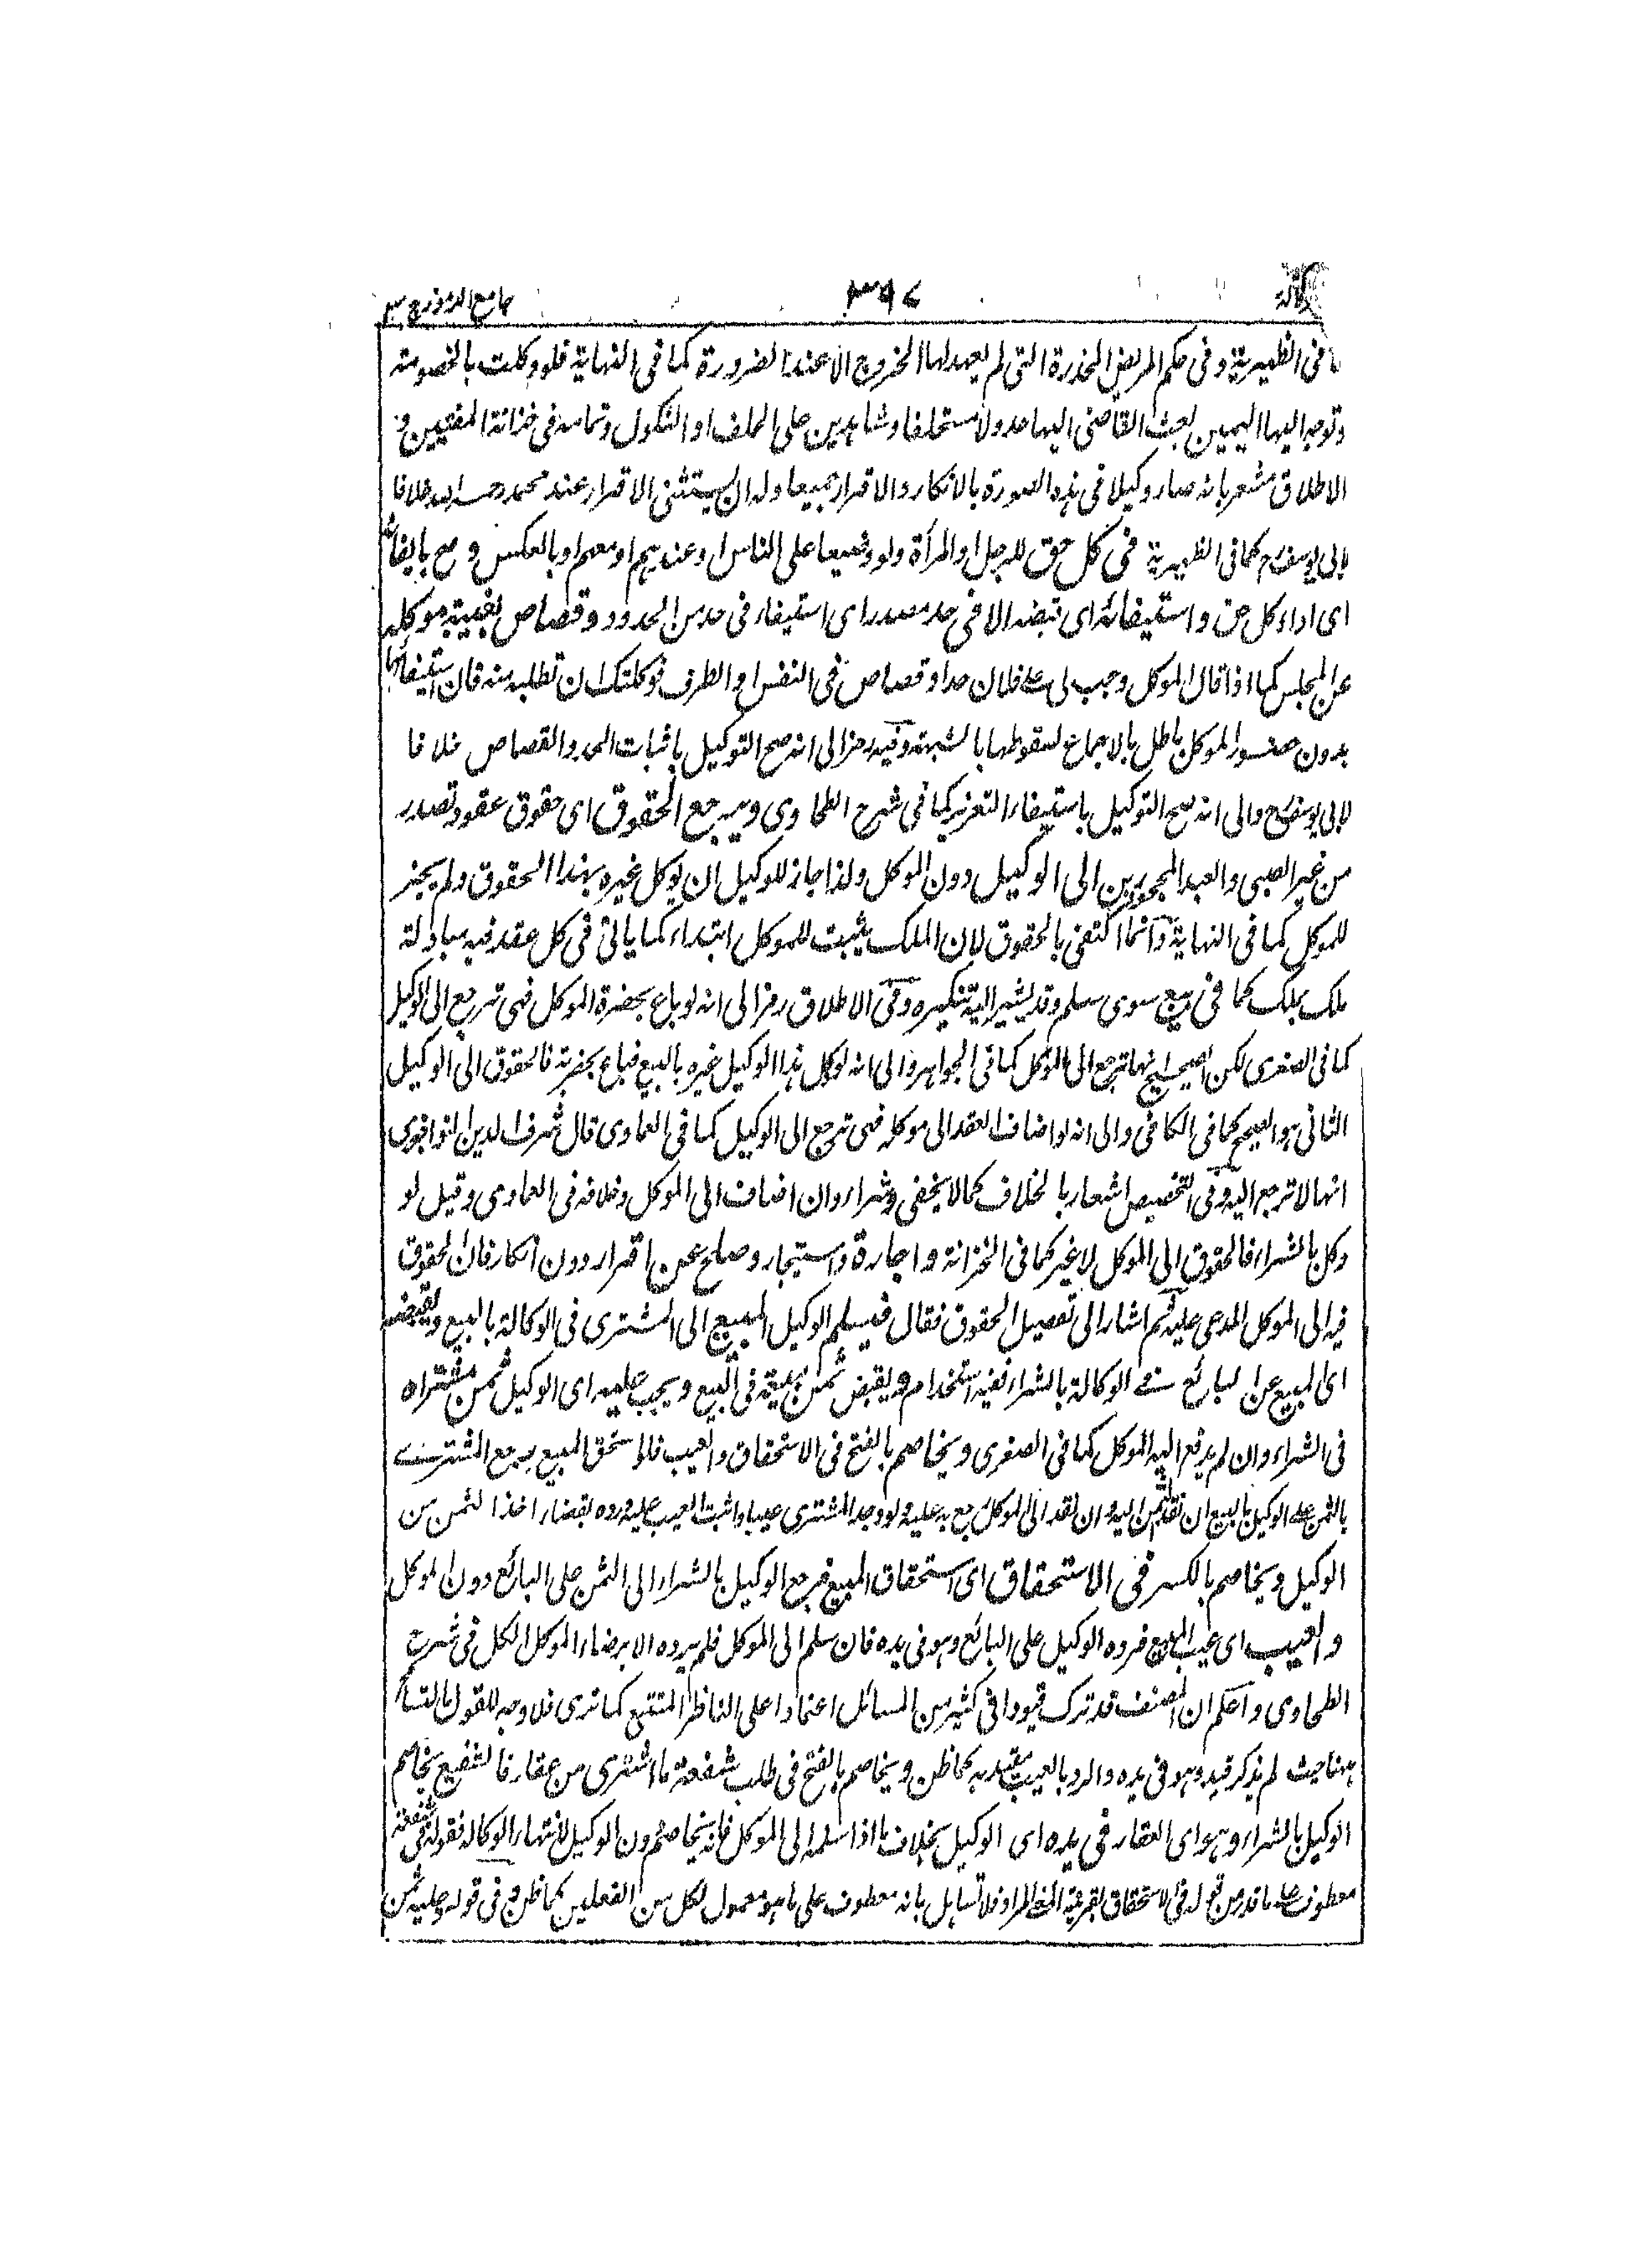 وكالة ٣٩٧ جامع الرموز ج ٣
ما فى الظهيرية وفى حكم المريض المخدرة التى لم يعهد لها الخروج الا عند الضرورة كما فى النهاية فلو وكلت بالخصومة
وتوجه اليها اليمين بعث القاضى اليها عدولا مستحلفا وشاهدين على الحلف او النكول وتمامه فى خزانة المفتيين و
الاطلاق مشعر بانه صار وكيلا فى هذه الصورة بالانكار والاقرار جميعا وله ان يستثنى الاقرار عند محمد رحمه الله خلافا
لابى يوسف رح كما فى الظهيرية فى كل حق للرجل او المرأة ولو وضيعا على الناس او عندهم او معهم او بالعكس و صح بايفائه
اى اداء كل حق و استيفائه اى قبضه الا فى حد مصدر اى استيفاء فى حد من الحدود و قصاص بغيبة موكله
عن المجلس كما اذا قال الموكل وجب لى على فلان حد او قصاص فى النفس او الطرف فوكلتك ان تطلبه منه فان استيفائها
بدون حضور الموكل باطل بالاجماع لسقوطها بالشبهة وفيه رمز الى انه صح التوكيل باثبات الحد والقصاص خلافا
لابى يوسف رح والى انه يصح التوكيل باستيفاء التعزير كما فى شرح الطحاوى ويرجع الحقوق اى حقوق عقود تصدر
من غير الصبى والعبد المحجورين الى الوكيل دون الموكل ولذا جاز للوكيل ان يوكل غيره بهذا الحقوق ولم يجز
للموكل كما فى النهاية وانما اكتفى بالحقوق لان الملك يثبت للموكل ابتداء كما ياتى فى كل عقد فيه مبادلة
ملك بملك كما فى بيع سوى سلم وقد يشير اليه تنكيره وفى الاطلاق رمز الى انه لو باع بحضرة الموكل فهى ترجع الى الوكيل
كما فى الصغرى لكن الصحيح انها ترجع الى الموكل كما فى الجواهر والى انه لو وكل هذا الوكيل غيره بالبيع فباع بحضرته فالحقوق الى الوكيل
الثانى هو الصحيح كما فى الكافى والى انه لو اضاف العقد الى موكله فهى ترجع الى الوكيل كما فى العمادى قال شرف الدين
انها لا ترجع اليه وفى التخصيص اشعار بالخلاف كما لا يخفى وشراء وان اضاف الى الموكل وخلافه فى العمادى وقيل لو
وكل بالشراء فالحقوق الى الموكل لا غير كما فى الخزانة و اجارة واستيجار وصلح عن اقرار دون انكار فان الحقوق
فيه الى الموكل المدعى عليه ثم اشار الى تفصيل الحقوق فقال فيسلم الوكيل المبيع الى المشترى فى الوكالة بالبيع ويقبضه
اى المبيع عن البائع فى الوكالة بالشراء ففيه استخدام ويقبض ثمن مبيعه فى البيع ويجب عليه اى الوكيل ثمن مشتراه
فى الشراء وان لم يدفع اليه الموكل كما فى الصغرى ويخاصم بالفتح فى الاستحقاق والعيب فلو استحق المبيع يرجع المشترى
بالثمن على الوكيل بالبيع ان نقد الثمن اليه وان نقد الى الموكل رجع به عليه ولو وجد المشترى عيبا واثبت العيب عليه ورده بقضاء اخذ الثمن من
الوكيل ويخاصم بالكسر فى الاستحقاق اى استحقاق المبيع فيرجع الوكيل بالشراء الى الثمن على البائع دون الموكل
و العيب اى عيب المبيع فرده الوكيل على البائع وهو فى يده فان سلم الى الموكل فلم يرده الا برضاء الموكل الكل فى شرح
الطحاوى واعلم ان المصنف قد ترك قيودا فى كثير من المسائل اعتمادا على الناظر المتتبع كما ترى فلا وجه للقول بالتسامح
ههنا حيث لم يذكر قيد وهو فى يده والرد بالعيب مقيد به كما ظن ويخاصم بالفتح فى طلب شفعة ما اشترى من عقار فالشفيع يخاصم
الوكيل بالشراء وهو اى العقار فى يده اى الوكيل بخلاف ما اذا سلمه الى الموكل فانه يخاصم دون الوكيل لانتهاء الوكالة فقوله فى شفعة
معطوف على ما قدر من قوله فى الاستحقاق بقرينة المراد فلا تساهل بانه معطوف على ما هو معمول لكل من الفعلين كما ظن وفى قوله وعليه ثمن